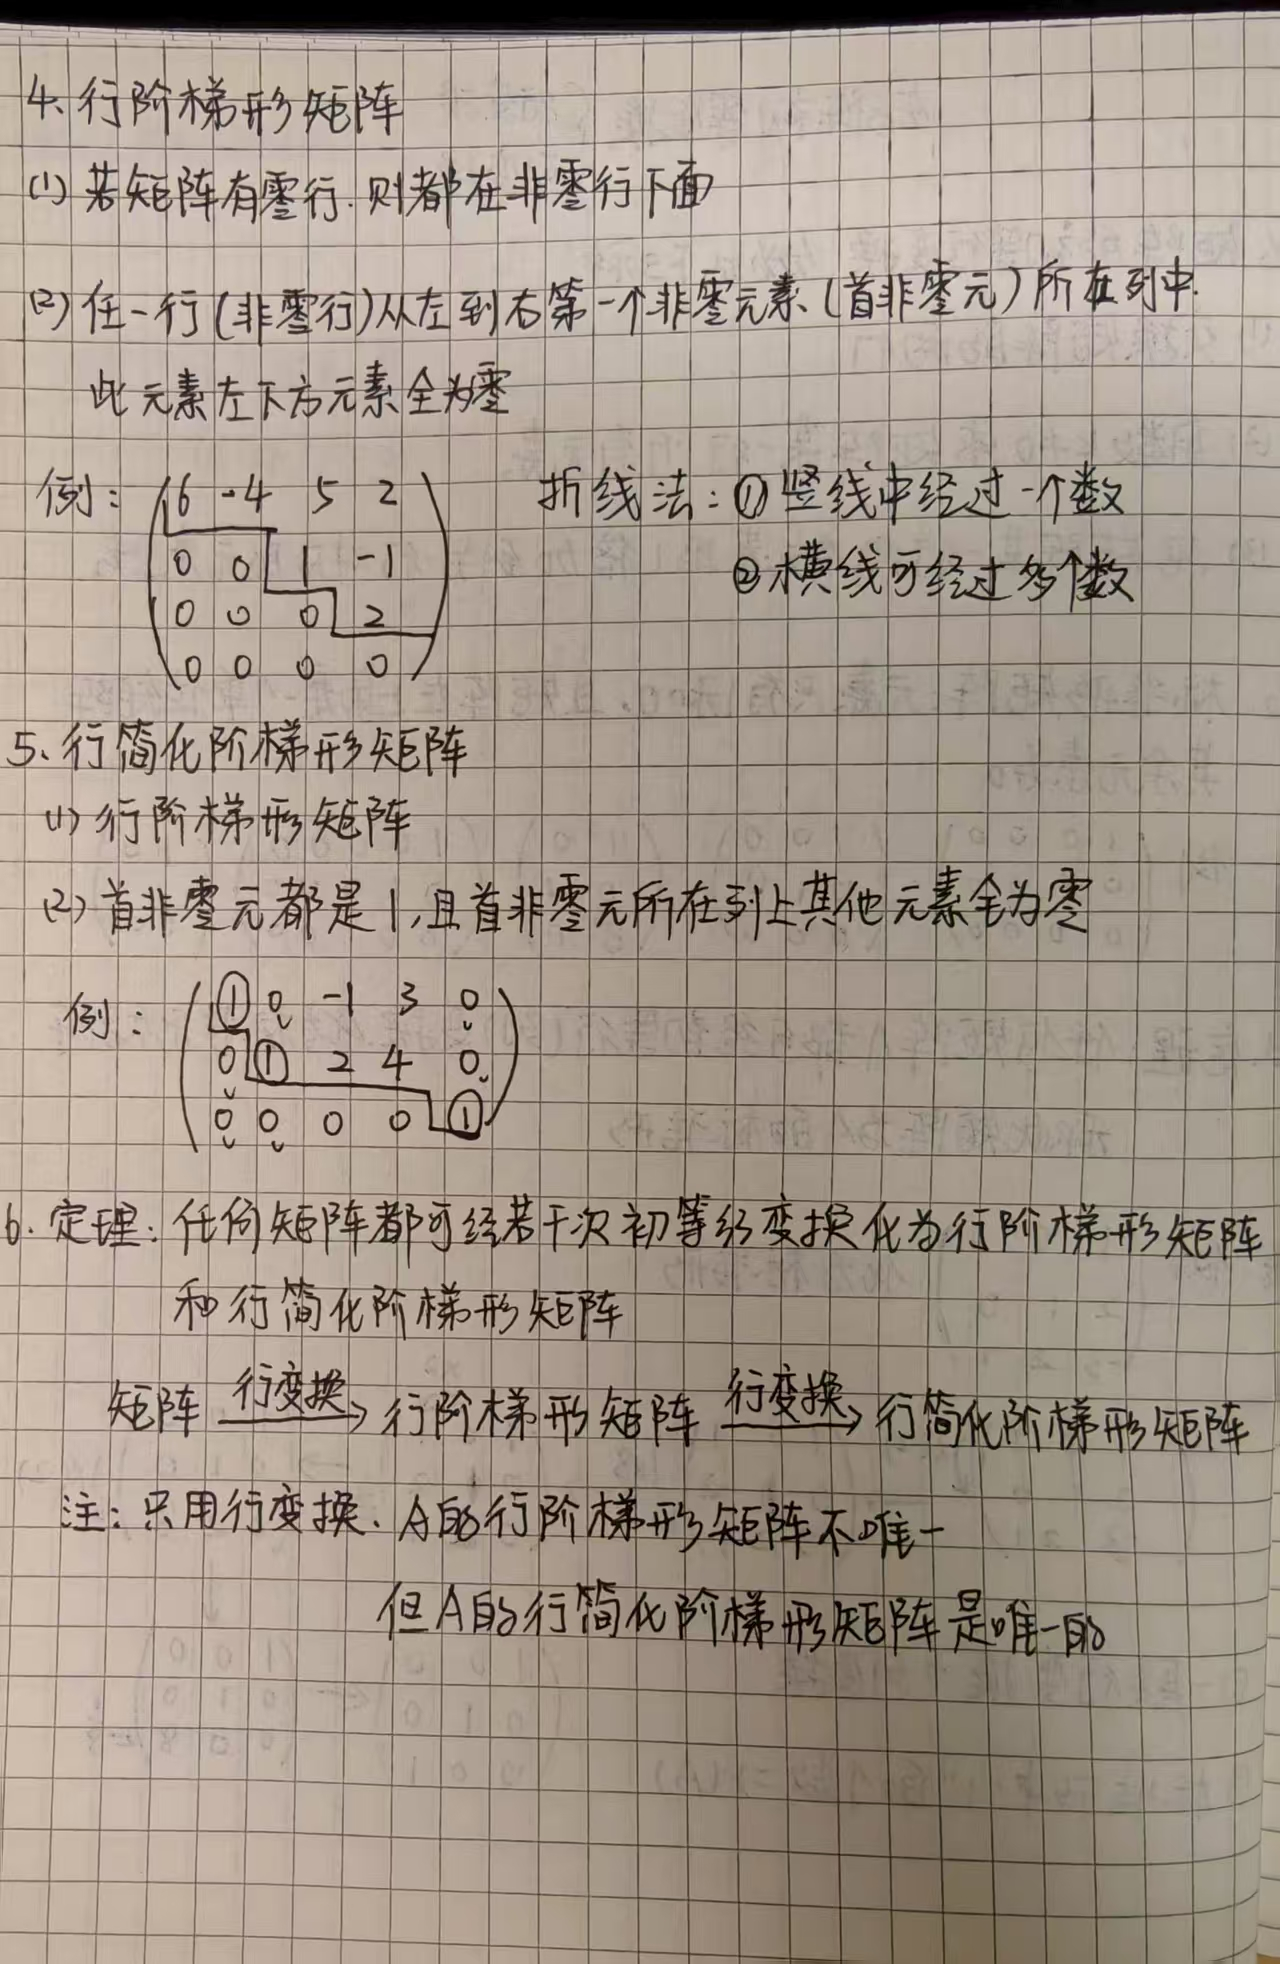 4、行阶梯形矩阵
(1) 若矩阵有零行.则都在非零行下面
(2) 任一行(非零行)从左到右第一个非零元素(首非零元)所在列中.
此元素左下方元素全为零
例: 6 -4 5 2 折线法:①竖线中经过一个数
0 0 1 -1 ②横线可经过多个数
0 0 0 2
0 0 0 0
5、行简化阶梯形矩阵
(1) 行阶梯形矩阵
(2) 首非零元都是1,且首非零元所在列上其他元素全为零
例: 1 0 -1 3 0
0 1 2 4 0
0 0 0 0 1
6. 定理:任何矩阵都可经若干次初等行变换化为行阶梯形矩阵
和行简化阶梯形矩阵
矩阵 行变换→ 行阶梯形矩阵 行变换→ 行简化阶梯形矩阵
注:只用行变换.A的行阶梯形矩阵不唯一
但A的行简化阶梯形矩阵是唯一的